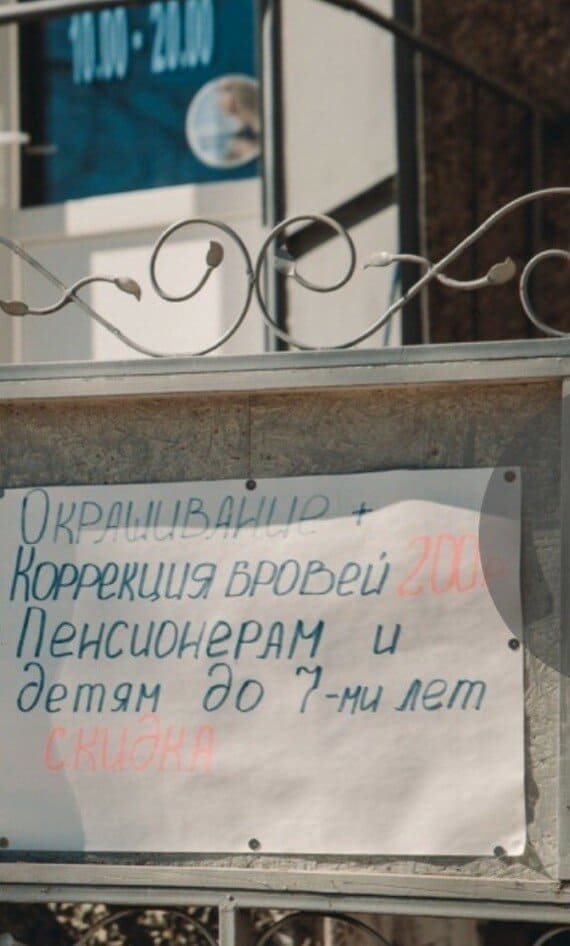 10.00 - 20.00
Окрашивание +
Коррекция бровей 200р
Пенсионерам и
детям до 7-ми лет
скидка